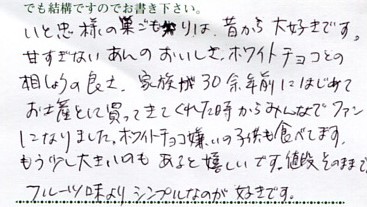 でも結構ですのでお書き下さい。
いと忠様の巣ごもりは、昔から大好きです。
甘すぎないあんのおいしさ、ホワイトチョコとの
相しょうの良さ、家族が30余年前にはじめて
お土産として買ってきてくれた時からみんなでファン
になりました。ホワイトチョコ嫌いの子供も食べてます。
もう少し大きいのもあると嬉しいです。値段そのままで
フルーツ味よりシンプルなのが好きです。